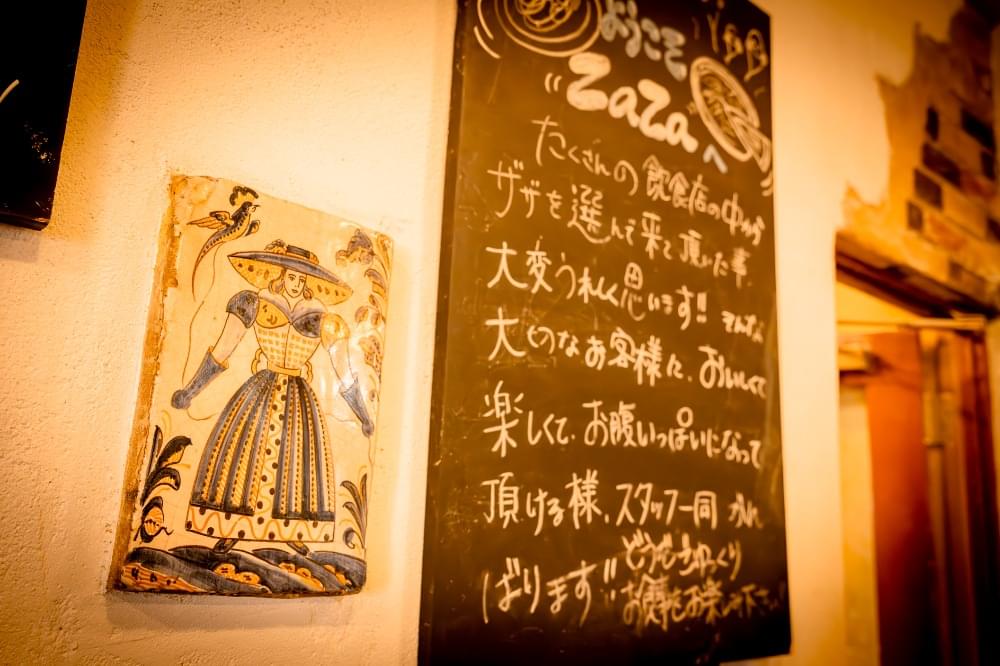 ようこそ
"ZaZa"へ
たくさんの飲食店の中から
ザザを選んで来て頂いた事
大変うれしく思います!! そんな
大切なお客様に、おいしくて
楽しくて、お腹いっぱいになって
頂ける様、スタッフ一同 がん
ばります!! どうぞごゆっくり
お食事をお楽しみ下さい